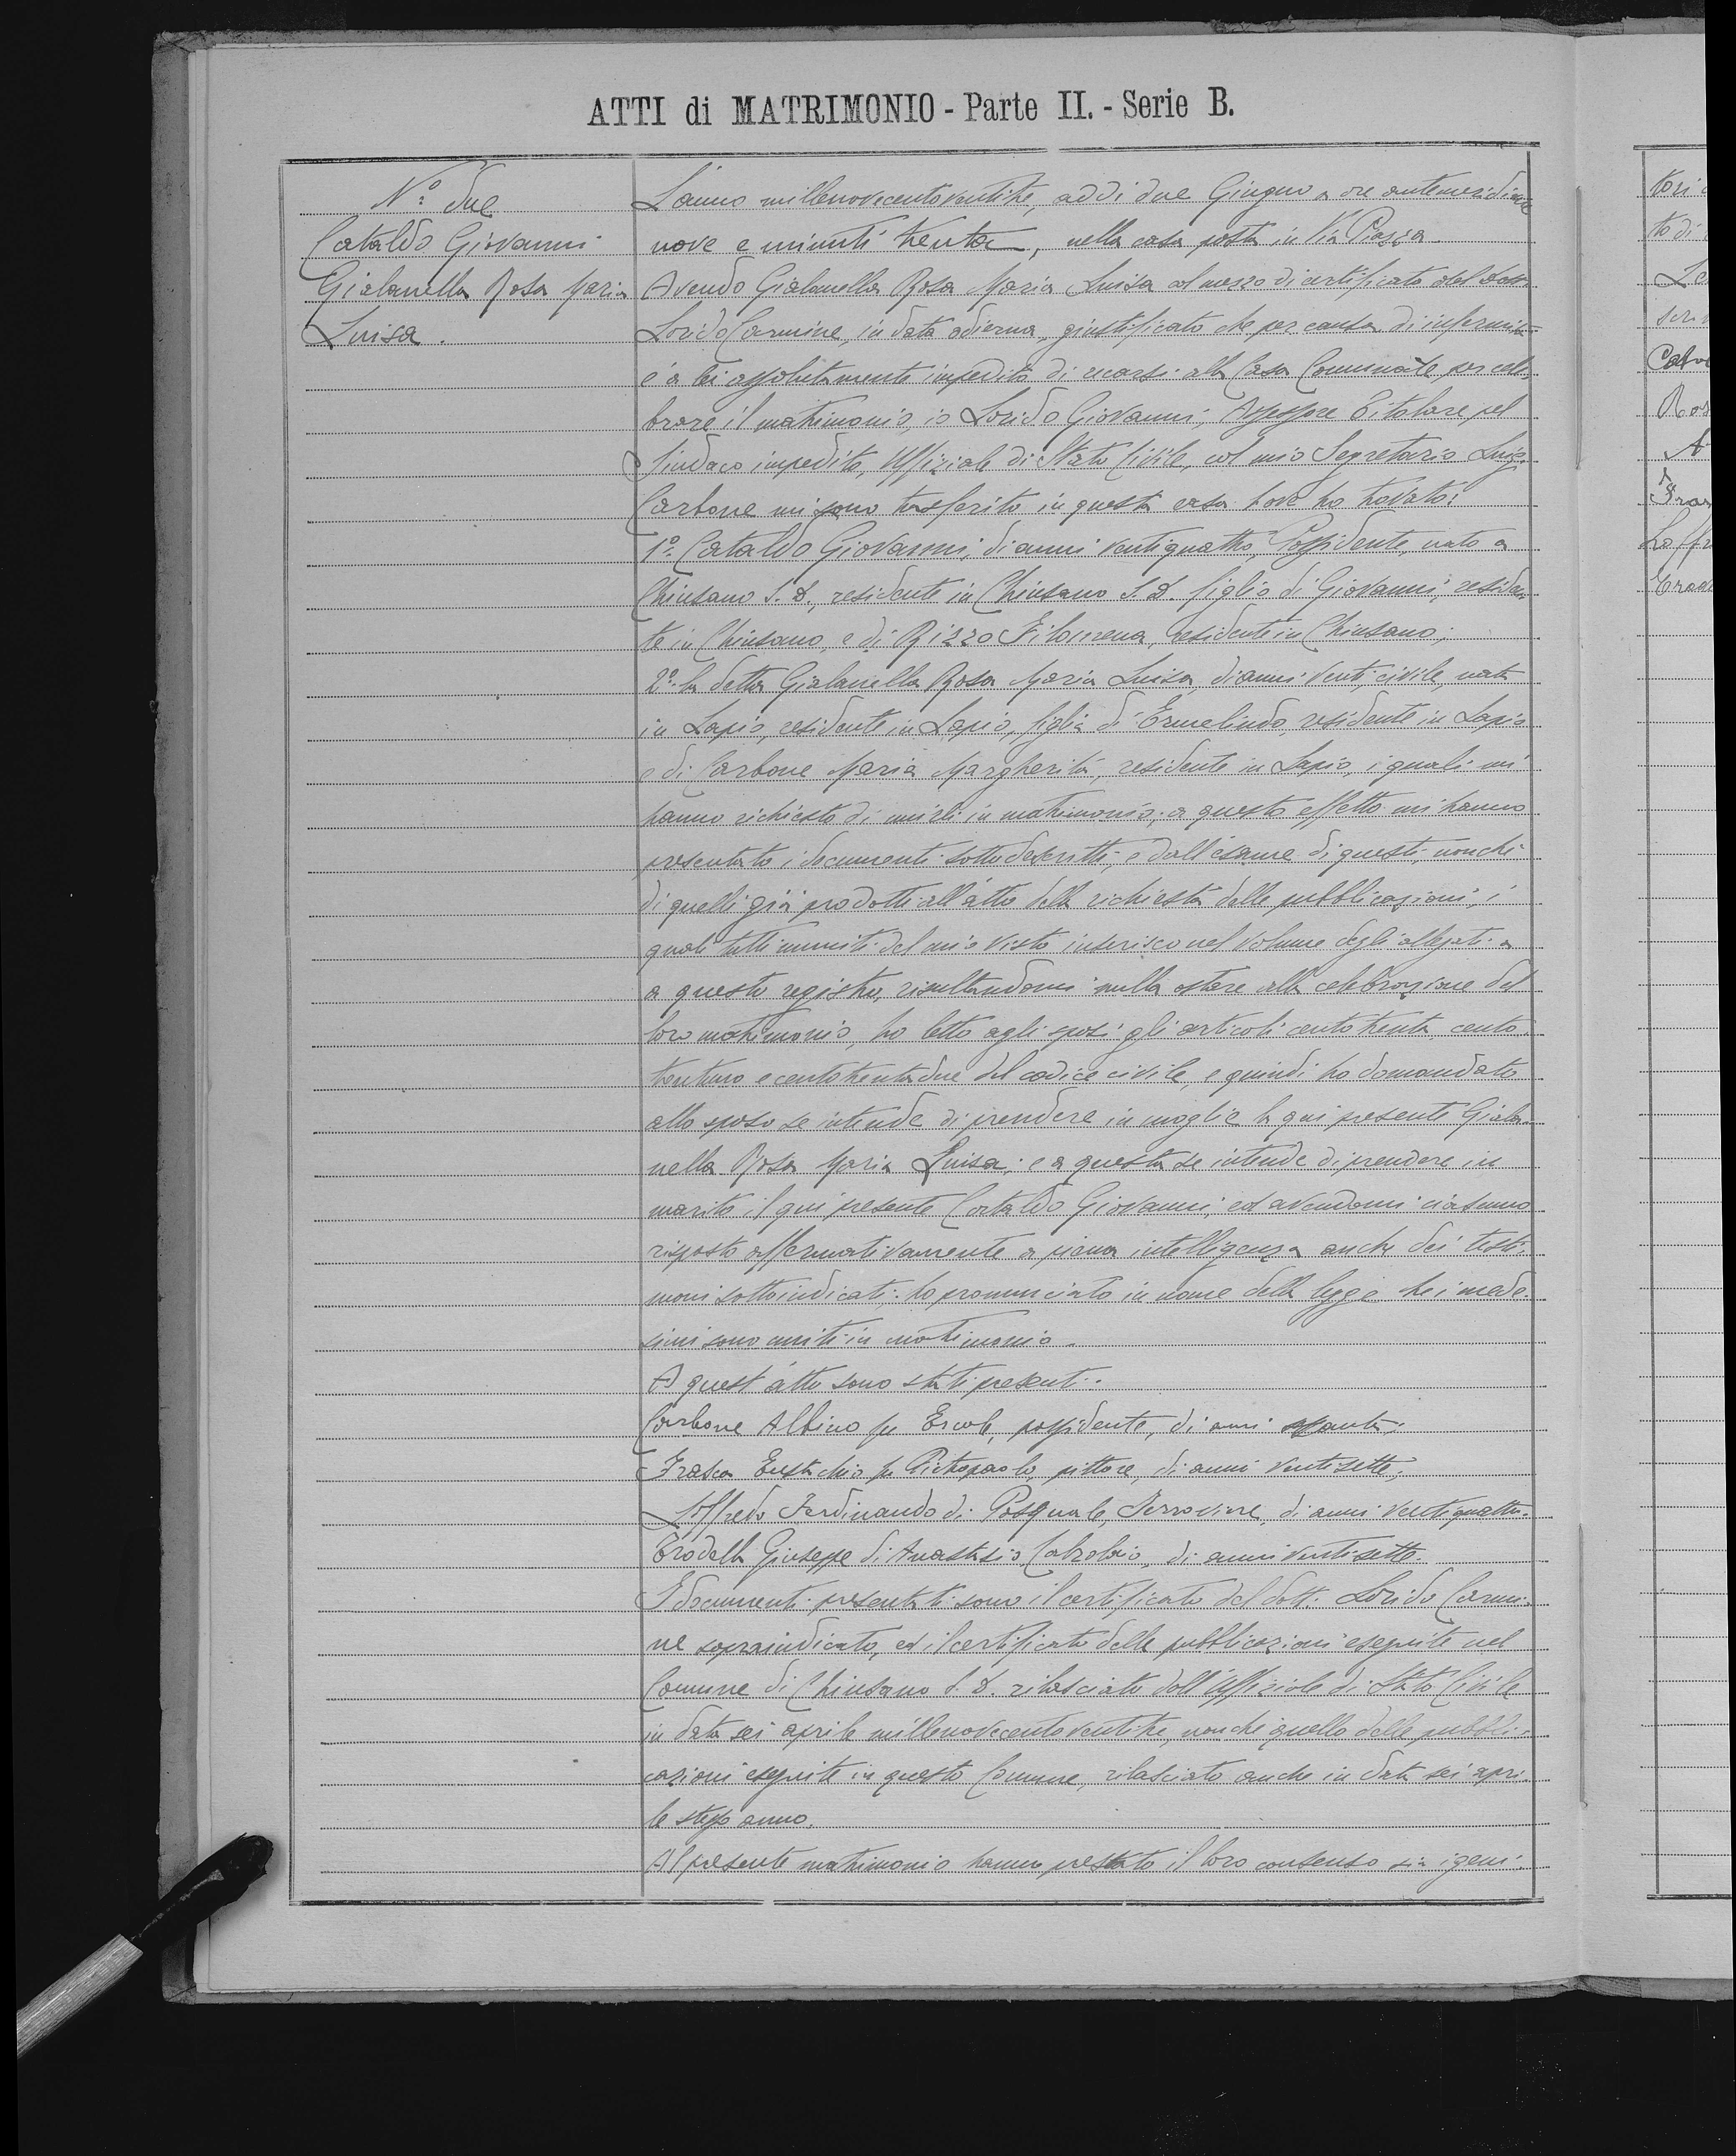 ATTI di MATRIMONIO - Parte II. - Serie B.
N.º due
Cataldo Giovanni
Gialanella Rosa Maria
Luisa.
L'anno millenovecentoventitre, addì due Giugno a ore antemeridiane
nove e minuti trenta, nella casa posta in Via Piazza.
Avendo Gialanella Rosa Maria Luisa col mezzo di certificato del Dott.
Lorido Carmine, in data odierna, giustificato che per causa di infermità
è a lei assolutamente impedito di recarsi alla Casa Comunale, per cele-
brare il matrimonio, io Lorido Giovanni, Assessore Titolare pel
Sindaco impedito, Uffiziale di Stato Civile, col mio Segretario Luigi
Carbone mi sono trasferito in questa casa dove ho trovato:
1º. Cataldo Giovanni, di anni ventiquattro, Possidente, nato a
Chiusano S. D., residente in Chiusano S. D. figlio di Giovanni, residen-
te in Chiusano, e di Rizzo Filomena, residente in Chiusano;
2º. la detta Gialanella Rosa Maria Luisa, di anni venti, civile, nata
in Lapio, residente in Lapio, figlia di Ermelindo, residente in Lapio
e di Carbone Maria Margherita, residente in Lapio, i quali mi
hanno richiesto di unirli in matrimonio; a questo effetto mi hanno
presentato i documenti sottodescritti, e dall'esame di questi, nonchè
di quelli già prodotti all'atto della richiesta delle pubblicazioni, i
quali tutti muniti del mio visto inserisco nel volume degli allegati a
a questo registro, risultandomi nulla ostare alla celebrazione del
loro matrimonio, ho letto agli sposi gli articoli centotrenta, cento-
trentuno e centotrentadue del codice civile, e quindi ho domandato
allo sposo se intende di prendere in moglie la qui presente Giala-
nella Rosa Maria Luisa; e a questa se intende di prendere in
marito il qui presente Cataldo Giovanni; ed avendomi ciascuno
risposto affermativamente a piena intelligenza anche dei testi-
moni sottoindicati, ho pronunciato in nome della legge che i mede-
simi sono uniti in matrimonio.
A quest'atto sono stati presenti:
Carbone Albino fu Ercole, possidente, di anni
Frasca Eustachio fu Pietropaolo, pittore, di anni ventisette;
Loffredo Ferdinando di Pasquale, Ferroviere, di anni ventiquattro.
Trodella Giuseppe di Anastasio Calzolaio, di anni ventisette.
I documenti presentati sono il certificato del dott. Lorido Carmi-
ne sopraindicato, ed il certificato delle pubblicazioni eseguite nel
Comune di Chiusano S. D. rilasciato dall'Uffiziale di Stato Civile
in data sei aprile millenovecentoventitre, nonchè quello delle pubbli-
cazioni eseguite in questo Comune, rilasciato anche in data sei apri-
le stesso anno.
Al presente matrimonio hanno prestato il loro consenso sia i geni-